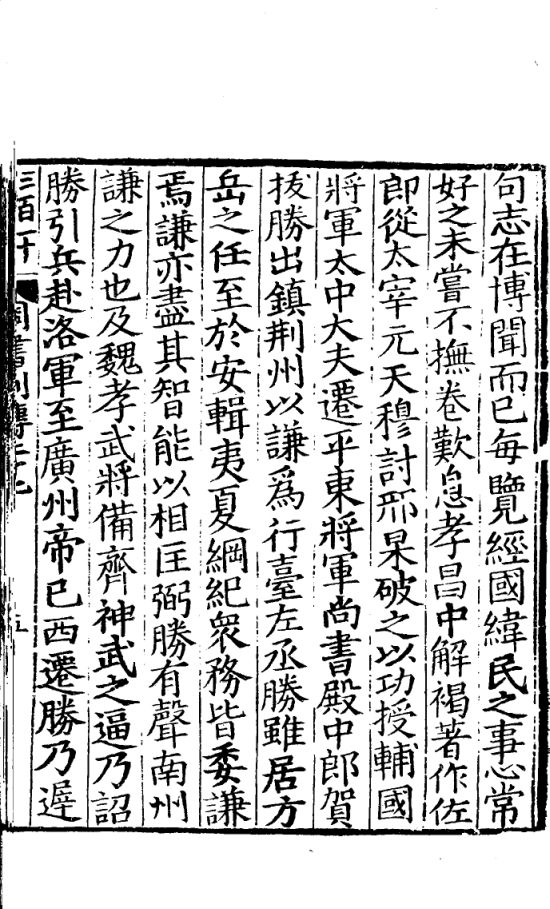 句志在博聞而已每覽經國緯民之事心常
好之未嘗不撫卷歎息孝昌中解褐著作佐
郎從太宰元天穆討邢杲破之以功授輔國
將軍太中大夫遷平東將軍尚書殿中郎賀
拔勝出鎮荆州以謙爲行臺左丞勝雖居方
岳之任至於安輯夷夏綱紀衆務皆委謙
焉謙亦盡其智能以相匡弼勝有聲南州
謙之力也及魏孝武將備齊神武之逼乃詔
勝引兵赴洛軍至廣州帝已西遷勝乃遲
三百一十
周書列傳二十七
五